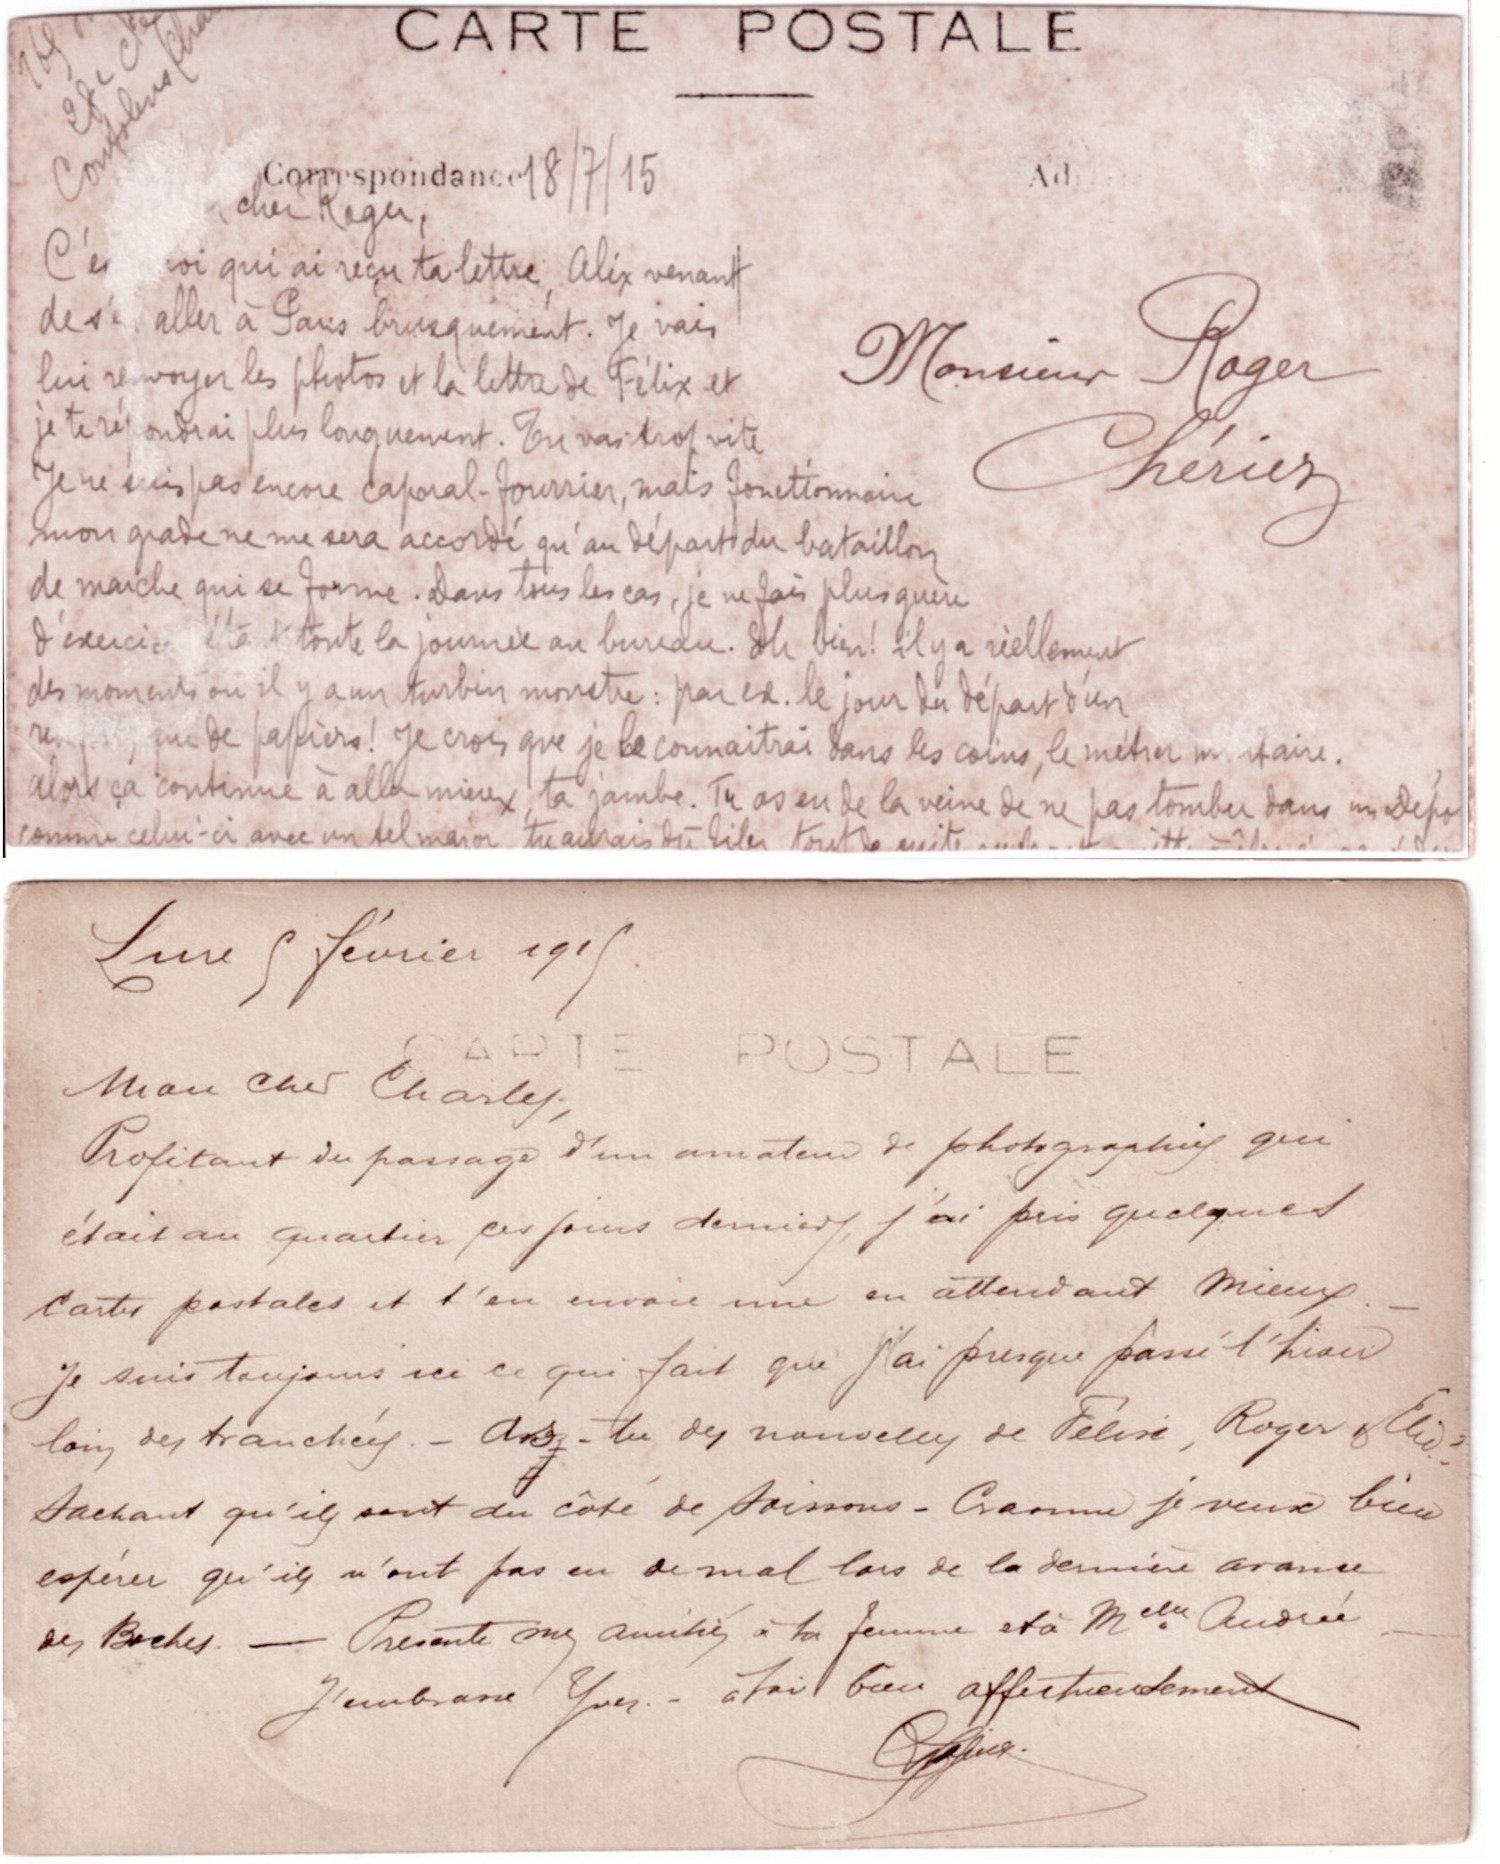 CARTE POSTALE
28e Cie
Confolens
Correspondance 18/7/15
cher Roger,
C'es moi qui ai reçu ta lettre, Alix venant
de s'en aller à Paris brusquement. Je vais
lui renvoyer les photos et la lettre de Félix et
je te répondrai plus longuement. Tu vas trop vite
Je ne suis pas encore caporal-fourrier, mais fonctionnaire
mon grade ne me sera accordé qu'au départ du bataillon
de marche qui se forme. Dans tous les cas, je ne fais plus guère
d'exercice étant toute la journée au bureau. Eh bien! il y a réellement
des moments où il y a un turbin monstre: par ex. le jour du départ d'un
renfort, que de papiers! Je crois que je le connaitrai dans les coins, le métier militaire.
alors ça continue à aller mieux, ta jambe. Tu as eu de la veine de ne pas tomber dans un Dépo
comme celui-ci avec un tel major, tu aurais dû filer tout de suite
Monsieur Roger
Chériez
Lure 5 février 1915.
CARTE POSTALE
Mon cher Charley,
Profitant du passage d'un amateur de photographies qui
était au quartier ces jours derniers, j'ai pris quelques
cartes postales et t'en envoie une en attendant mieux. —
Je suis toujours ici ce qui fait que j'ai presque passé l'hiver
loin des tranchées. — As-tu des nouvelles de Félix, Roger &
Sachant qu'ils sont du côté de Soissons - Craonne je veux bien
espérer qu'ils n'ont pas eu de mal lors de la dernière avance
des Boches. — Présente mes amitiés à ta femme et à Melle Andrée —
J'embrasse Yves. - à toi bien affectueusement